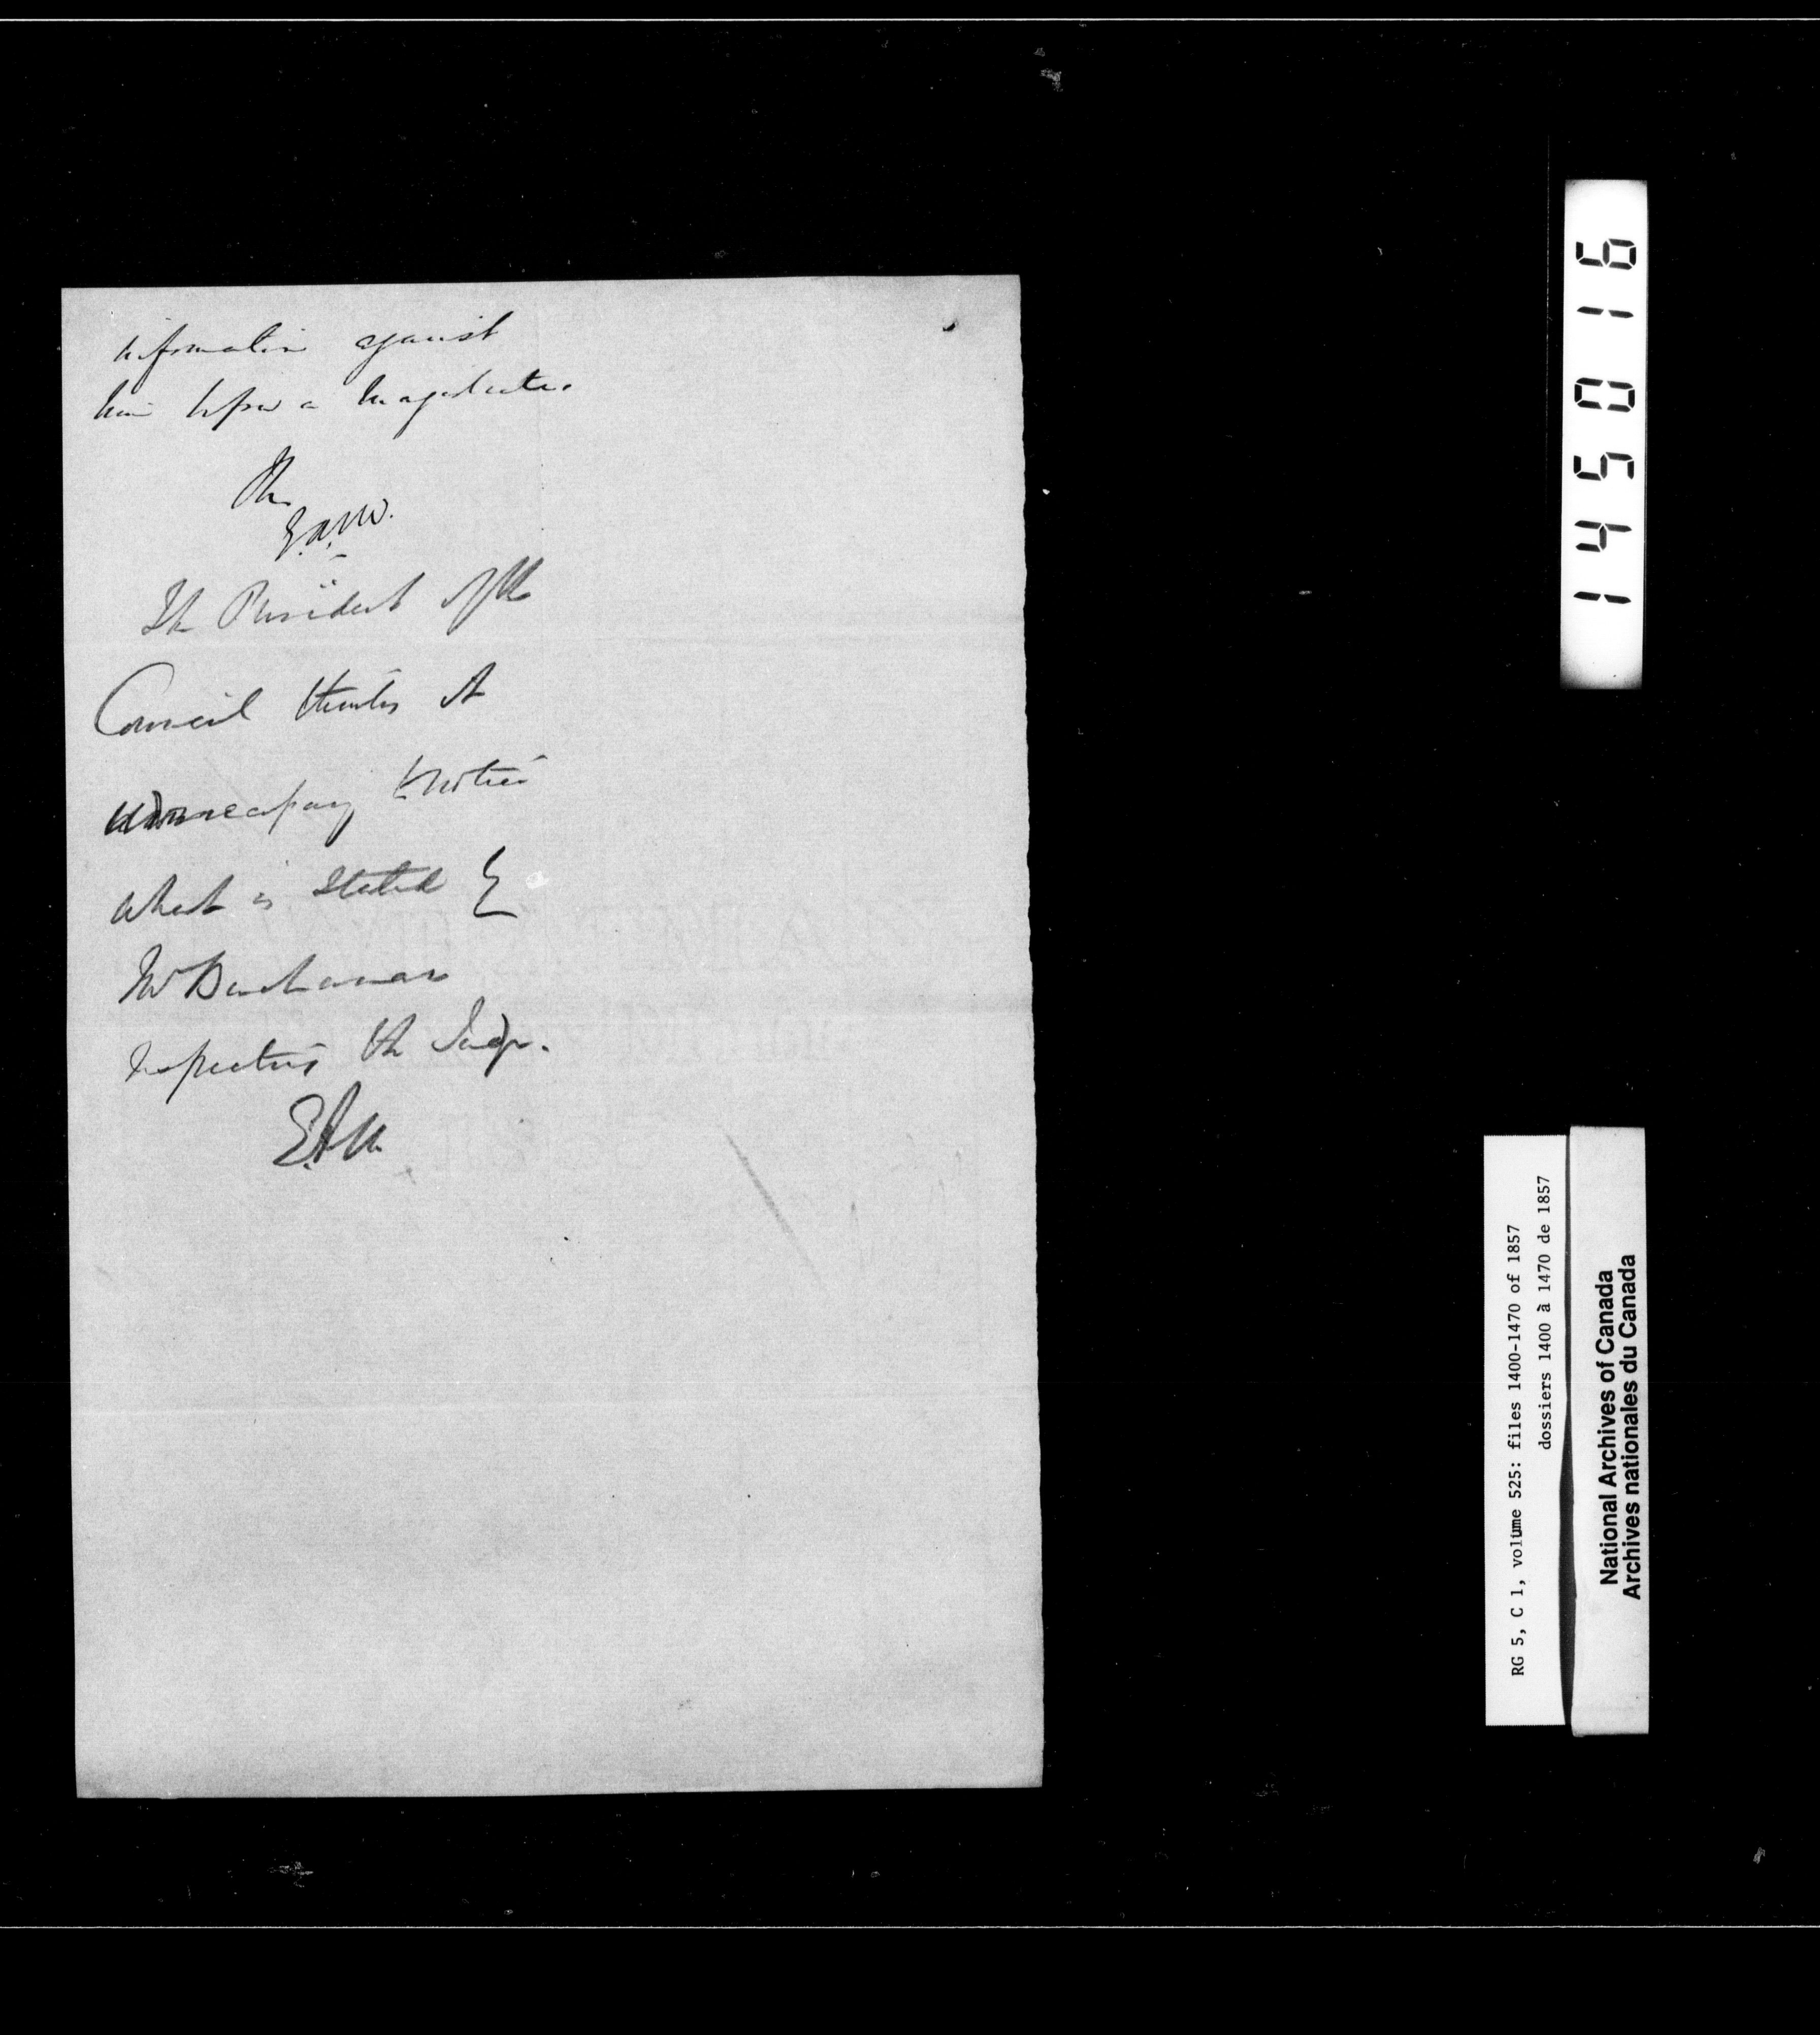 information against
him before a Magistrate.
E.A.M.
The President of the
Council thinks it
unnecessary to notice
what is stated by
Mr Buchanan
respecting the Judge.
E.A.M.
145016
RG 5, C 1, volume 525: files 1400-1470 of 1857
dossiers 1400 à 1470 de 1857
National Archives of Canada
Archives nationales du Canada